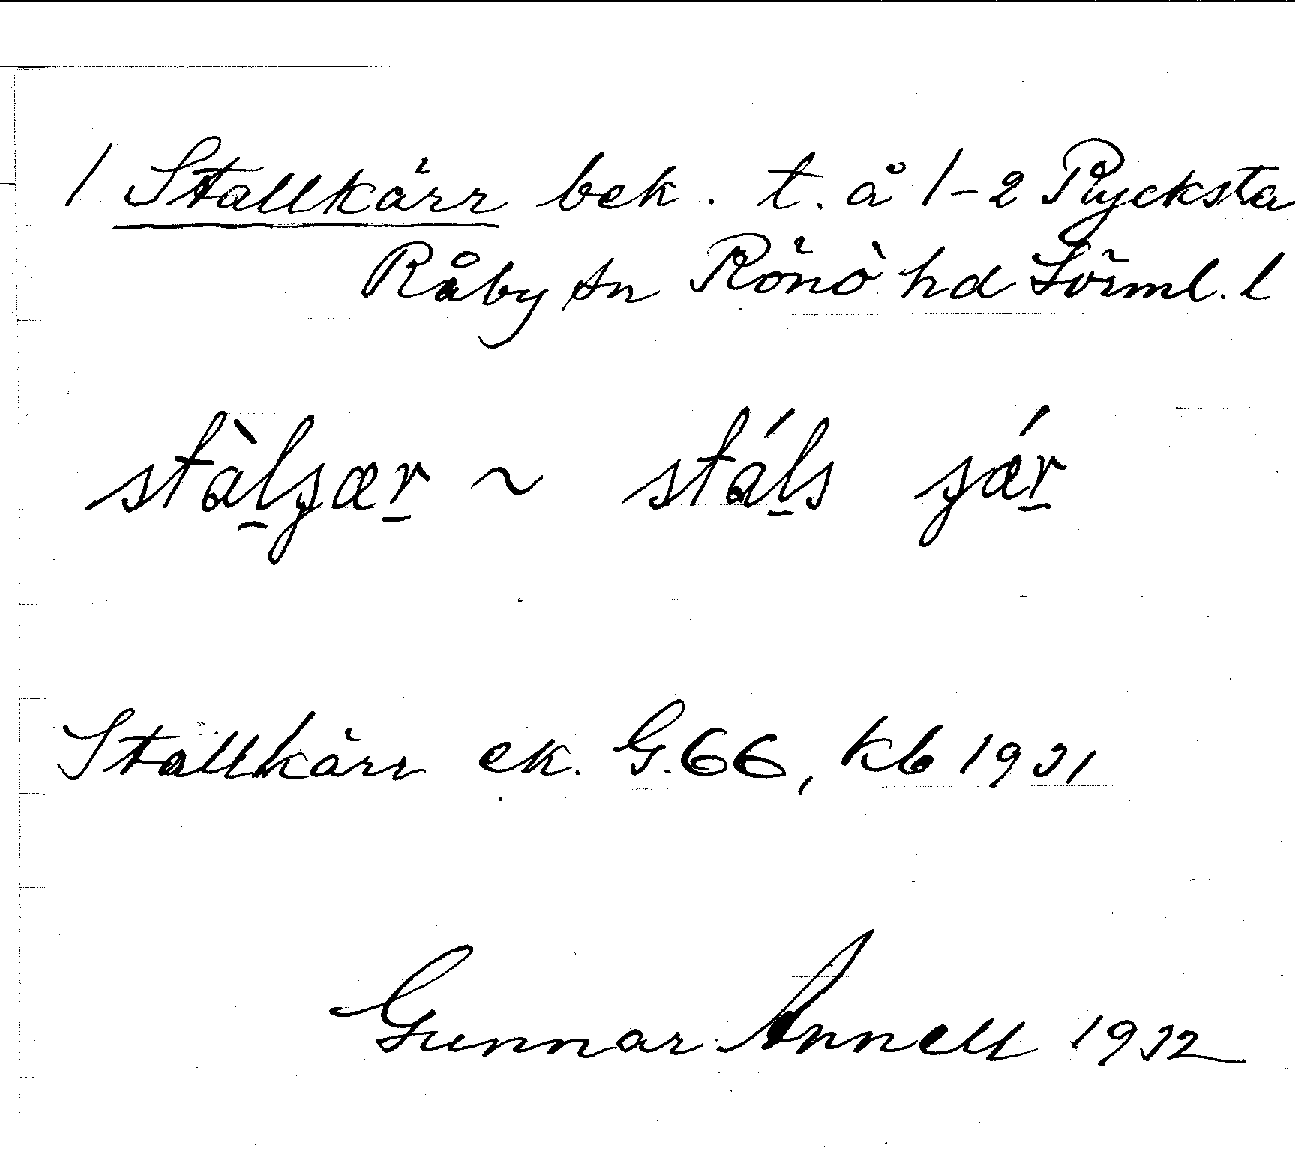 1 Stallkärr bek. t. å 1-2 Rycksta
Råby sn Rönö hd Sörml. l
stàl̠ʂær̠ ~ stál̠s ʂǽr̠
Stallkärr ek. G.66, kb 1931
Gunnar Annell 1932